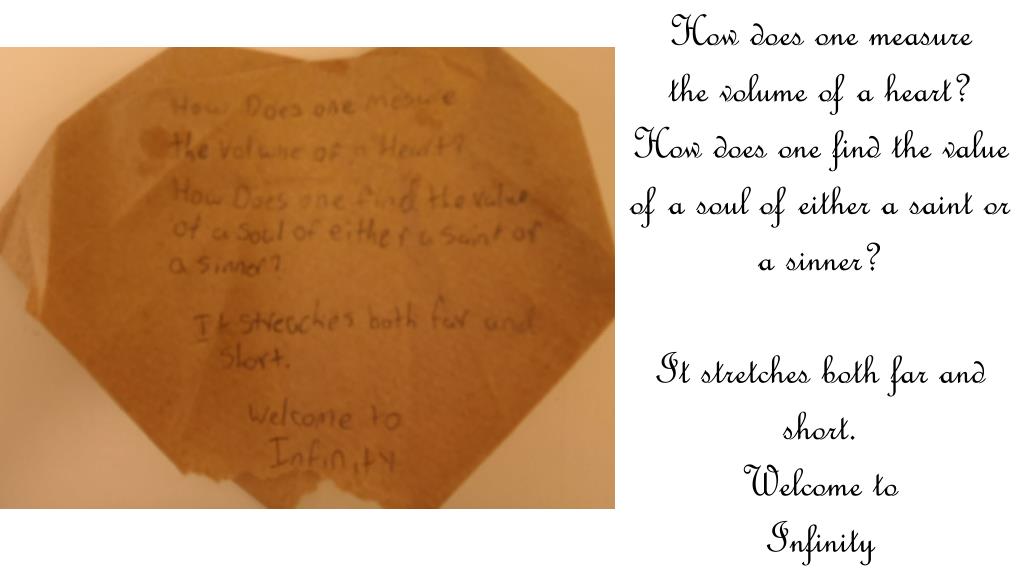 How Does one mesure
the volume of a Heart?
How Does one find the value
of a soul of either a saint or
a sinner?
It streaches both far and
short.
Welcome to
Infinity
How does one measure
the volume of a heart?
How does one find the value
of a soul of either a saint or
a sinner?
It stretches both far and
short.
Welcome to
Infinity